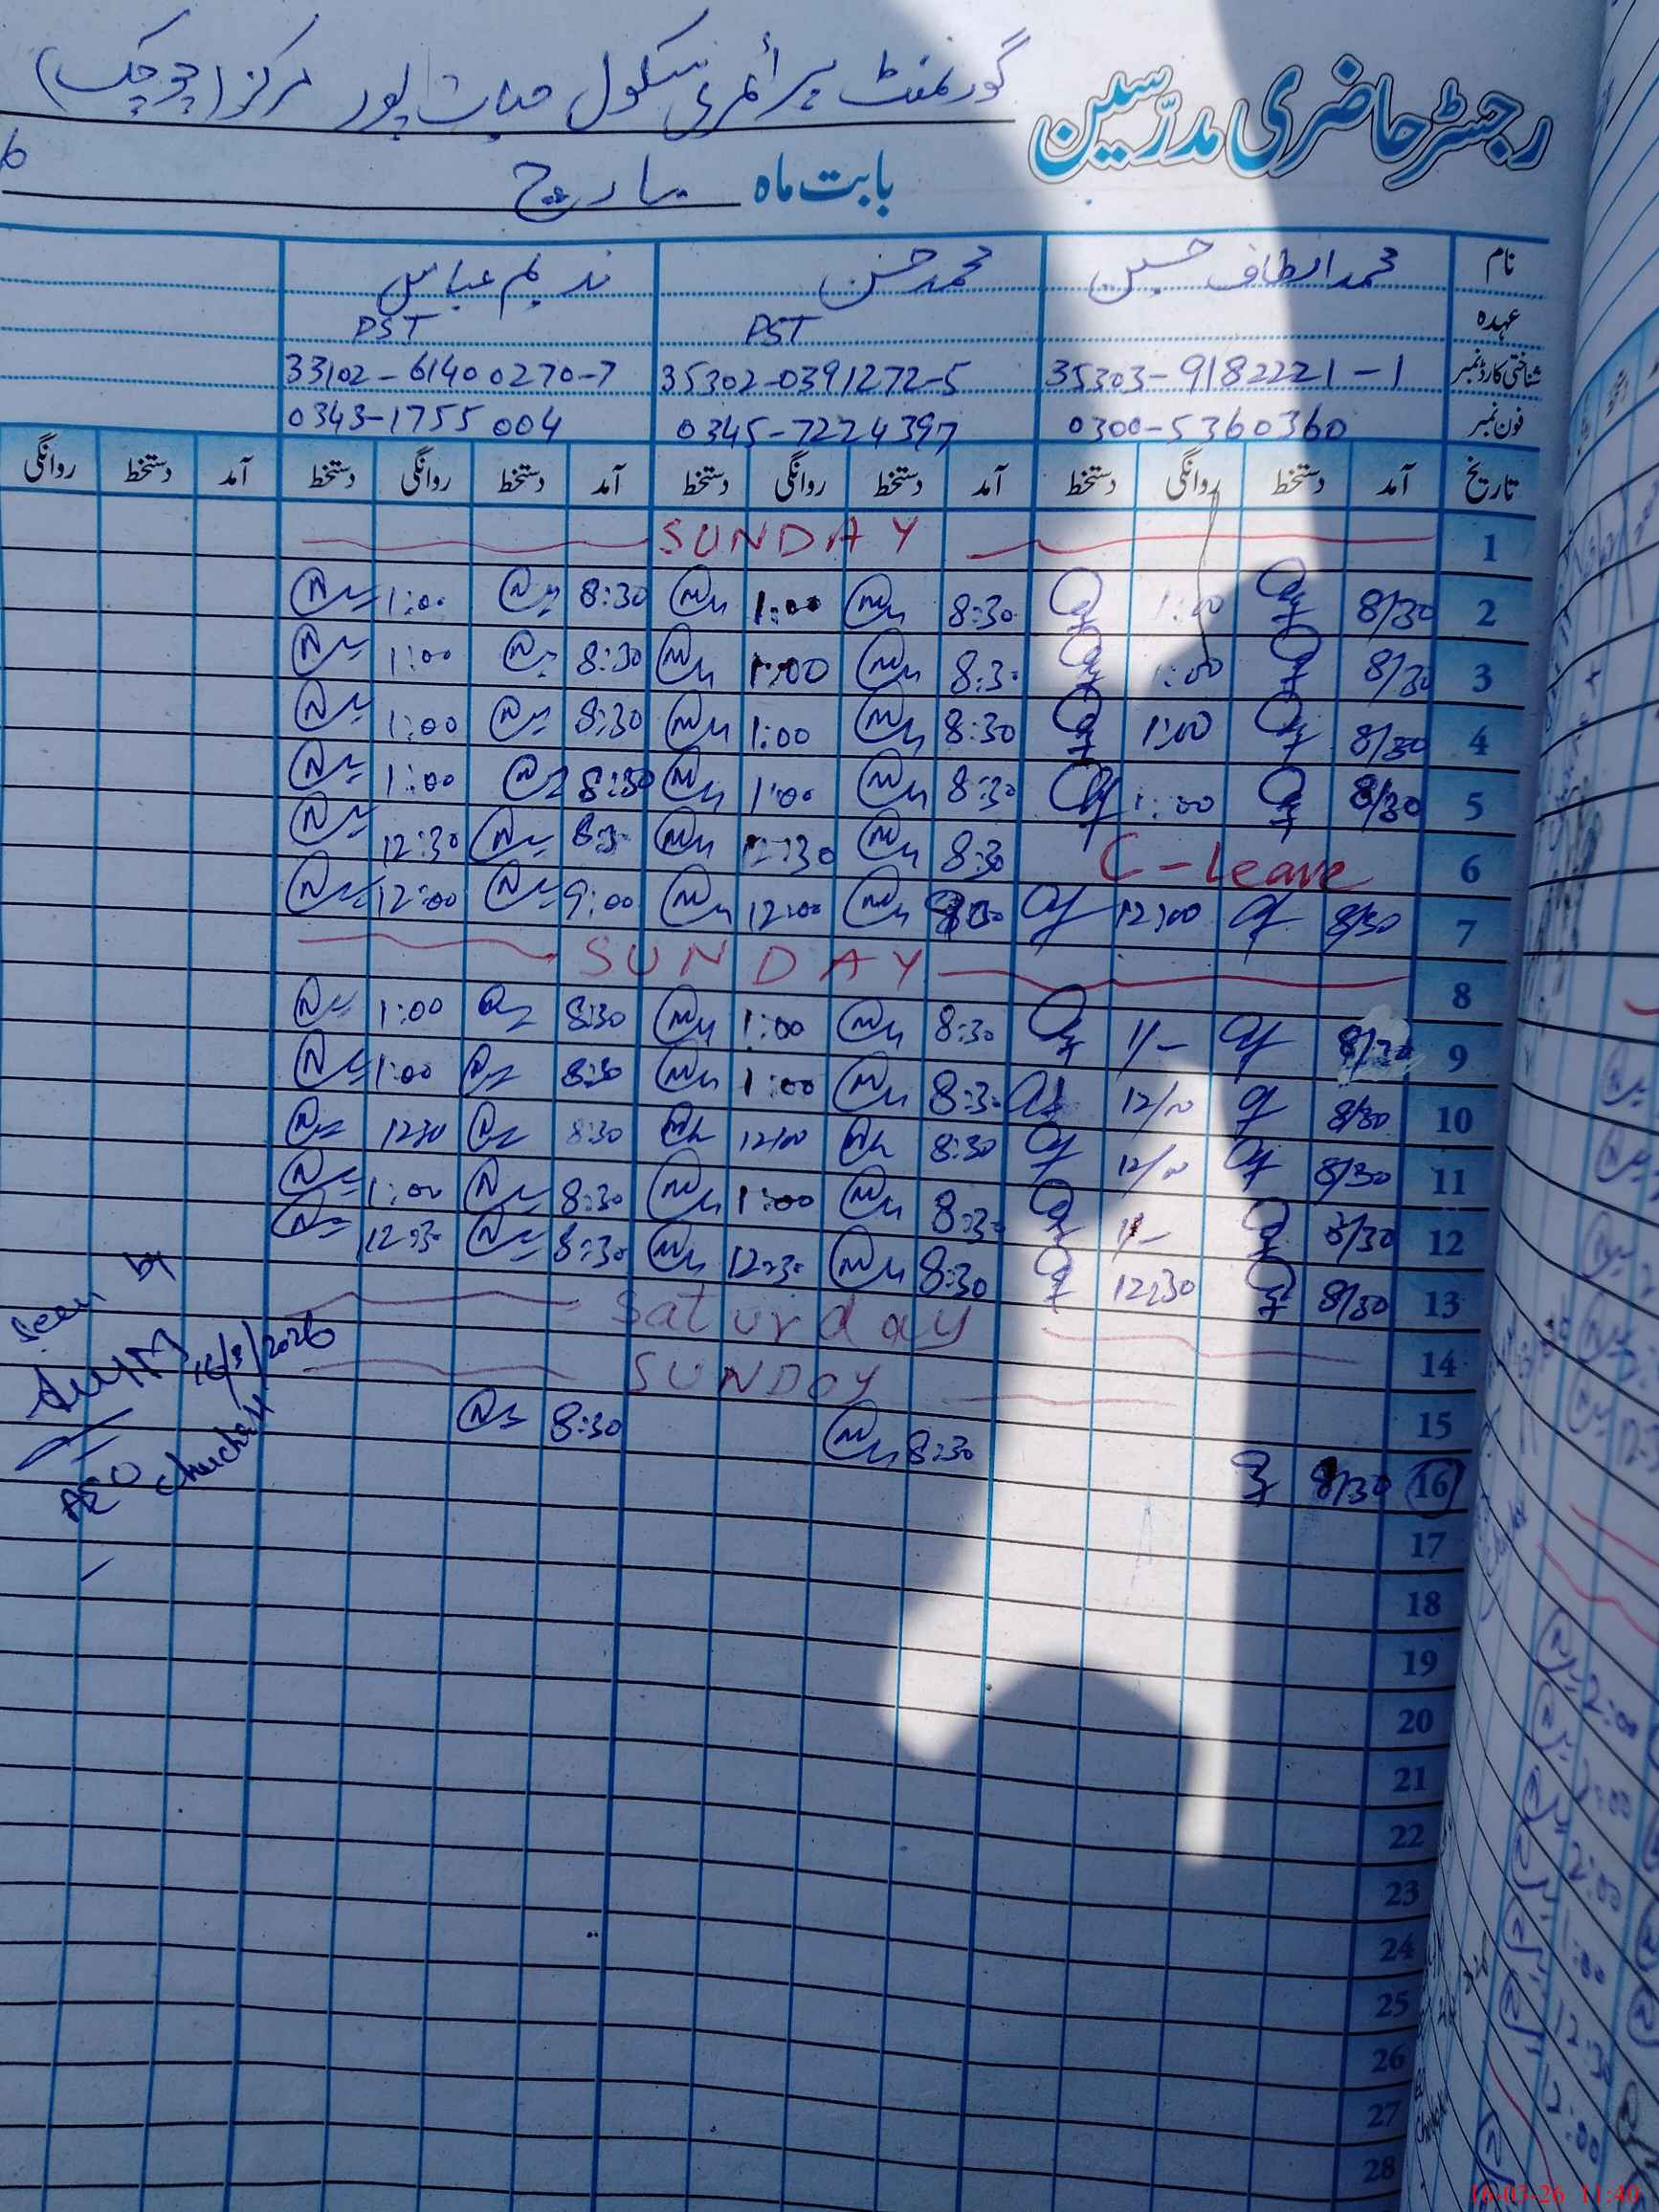 رجسٹر حاضری مدرسین گورنمنٹ پرائمری سکول حیات پور مرکز (چوچک)
بابت ماہ مارچ
نام محمد الطاف حسین محمد حسن ندیم عباس
عہدہ PST PST
شناختی کارڈ نمبر 35303-9182221-1 35302-0391272-5 33102-61400270-7
فون نمبر 0300-5360360 0345-7224397 0343-1755004
تاریخ آمد دستخط روانگی دستخط آمد دستخط روانگی دستخط آمد دستخط روانگی دستخط آمد دستخط روانگی
1 SUNDAY
2 8/30 1:00 8:30 1:00 8:30 1:00
3 8/30 1:00 8:30 1:00 8:30 1:00
4 8/30 1:00 8:30 1:00 8:30 1:00
5 8/30 1:00 8:30 1:00 8:30 1:00
6 C-Leave 8:30 12:30 8:30 12:30
7 8/30 12:00 12:00 9:00 12:00
8 SUNDAY
9 8/30 1/- 8:30 1:00 8:30 1:00
10 8/30 12/00 8:30 1:00 8:30 1:00
11 8/30 12/00 8:30 12/00 8:30 1230
12 8/30 1/- 8:30 1:00 8:30 1:00
13 8/30 12:30 8:30 12:30 8:30 12:30
14 Saturday
15 SUNDAY
16 8/30 8:30 8:30
Seen by
16/3/2026
AEO Chuchak
17
18
19
20
21
22
23
24
25
26
27
28
16-03-26 11:40